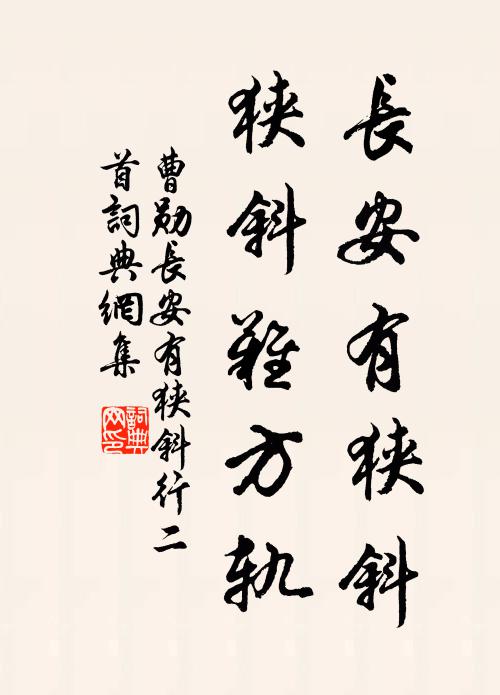 長安有狹斜
狹斜難方軌
曹勛長安有狹斜行二
首詞典網集
詞典網印